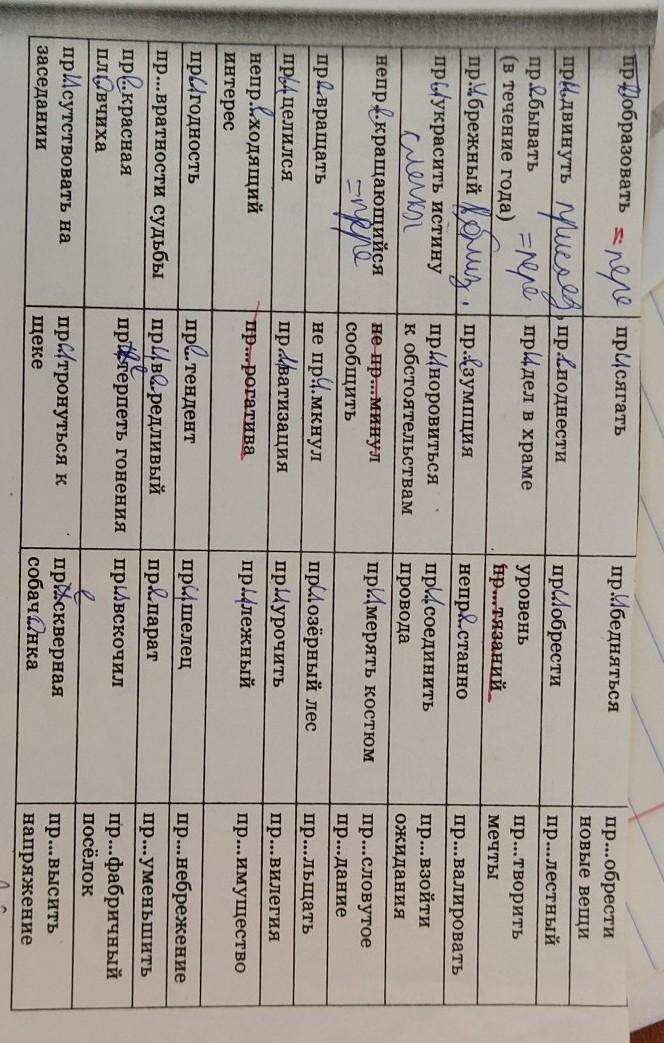 пр...образовать = пере
пр.и.двинуть присоед,
пр.е.бывать
(в течение года) = пере
пр.и.брежный вблиз,
пр.и.украсить истину
слегка
непр.е.кращающийся
= пере
пр.е.вращать
пр.и.целился
непр.е.ходящий
интерес
пр.и.годность
пр...вратности судьбы
пр.е.красная
пловчиха
пр.и.сутствовать на
заседании
пр.и.сягать
пр.е.поднести
пр.и.дел в храме
пр.е.зумпция
пр.и.норовиться
к обстоятельствам
не пр...минул
сообщить
не пр.и.мкнул
пр.и.ватизация
пр...рогатива
пр.е.тендент
пр.и.вередливый
пр.е.терпеть гонения
пр.и.тронуться к
щеке
пр.и.бедняться
пр.и.обрести
уровень
пр...тязаний
непр.е.станно
пр.и.соединить
провода
пр.и.мерять костюм
пр.и.озёрный лес
пр.и.урочить
пр.и.лежный
пр.и.шелец
пр.е.парат
пр.и.вскочил
пр.е.скверная
собачонка
пр...обрести
новые вещи
пр...лестный
пр...творить
мечты
пр...валировать
пр...взойти
ожидания
пр...словутое
пр...дание
пр...льщать
пр...вилегия
пр...имущество
пр...небрежение
пр...уменьшить
пр...фабричный
посёлок
пр...высить
напряжение